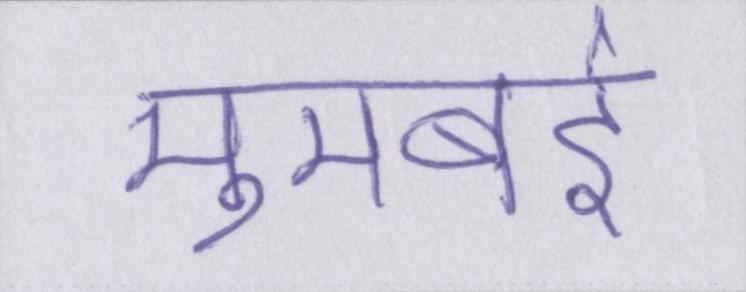 मुमबई